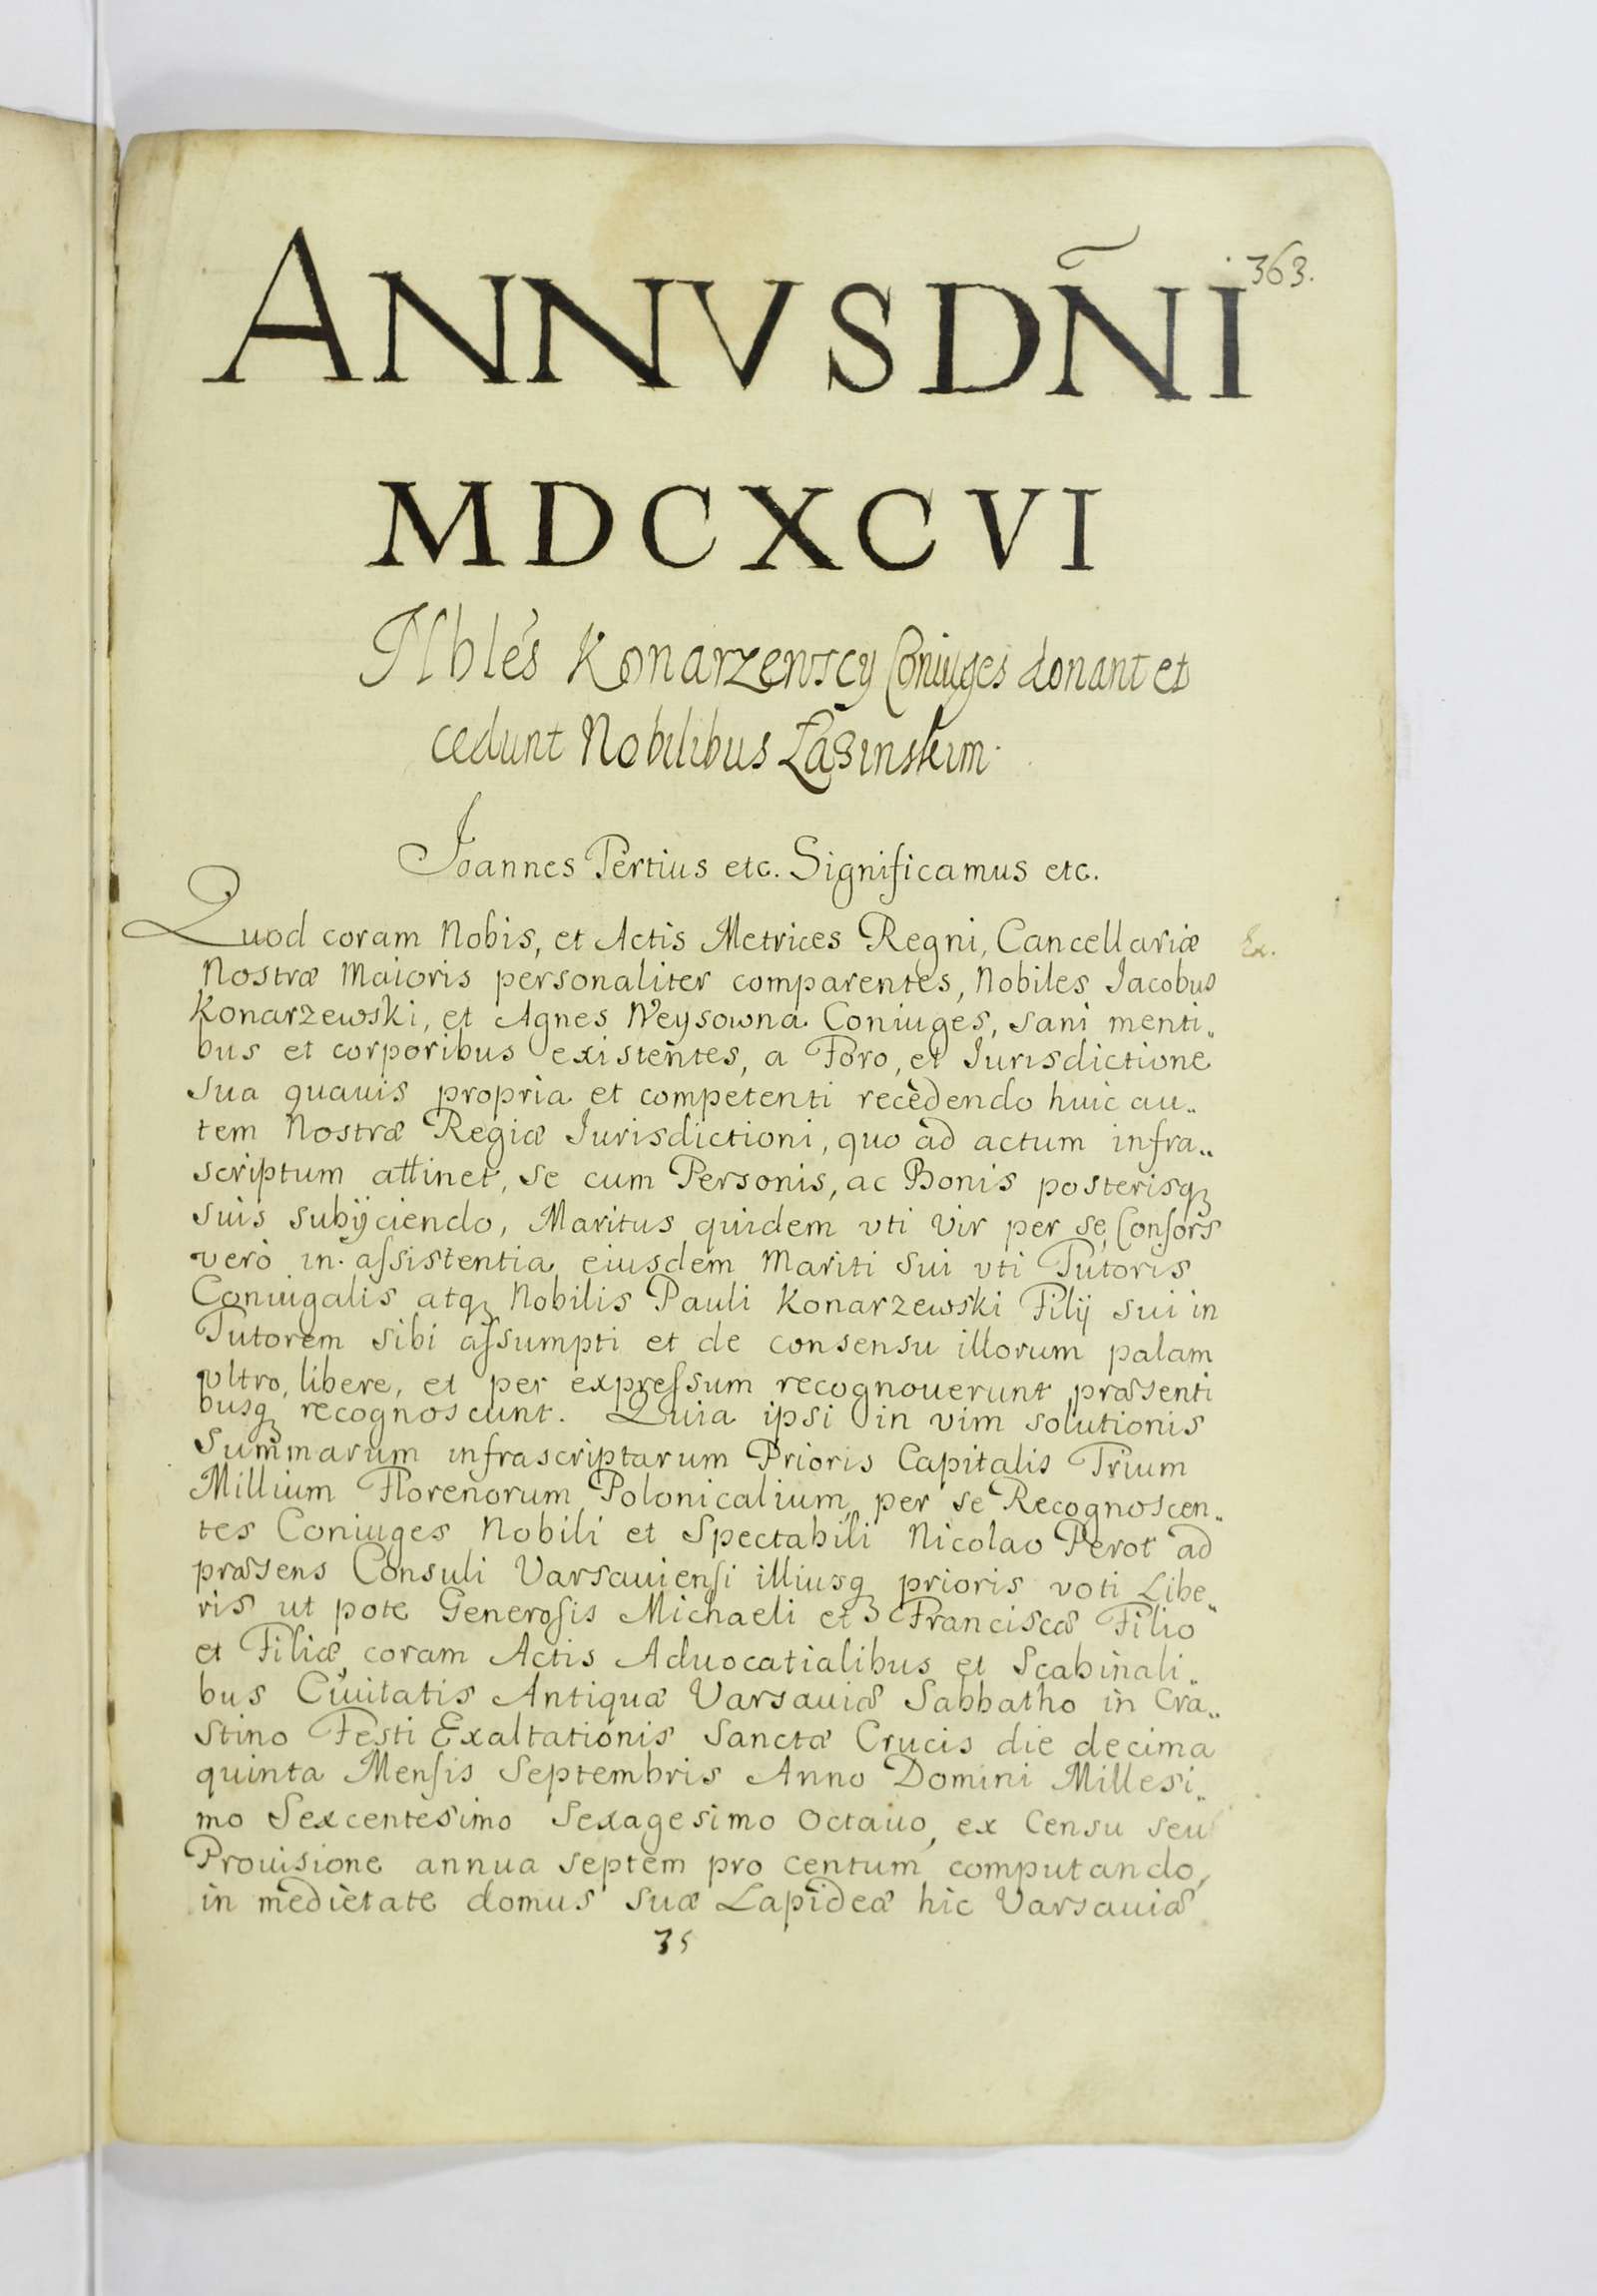 363.
ANNVS DÑI
MDCXCVI
Nblés Konarzewscy Coniuges donant et
cedunt Nobilibus Łasinskim.
Joannes Tertius etc. Significamus etc.
Quod coram Nobis, et Actis Metrices Regni, Cancellariæ
Ex.
Nostræ Maioris personaliter comparentes, Nobiles Iacobus
Konarzewski, et Agnes Weysowna Coniuges, sani menti„
bus et corporibus existentes, a Foro, et Iurisdictione
sua quavis propria et competenti recedendo huic au„
tem Nostræ Regiæ Iurisdictioni, quo ad actum infra„
scriptum attinet, se cum Personis, ac Bonis posterisqꝫ
suis subijciendo, Maritus quidem vti vir per se, Conſors
verò in aſsistentia eiusdem Mariti sui vti Tutoris
Coniugalis atqꝫ Nobilis Pauli Konarzewski Filij sui in
Tutorem sibi aſsumpti et de consensu illorum palam
vltro, libere, et per expreſsum recognouerunt præsenti
busqꝫ recognoscunt. Quia ipsi in vim solutionis
Summarum infrascriptarum Prioris Capitalis Trium
Millium Florenorum Polonicalium, per se Recognoscen„
tes Coniuges Nobili et Spectabili Nicolao Perot ad
præsens Consuli Varsauienſi illiusqꝫ prioris voti Libe„
ris ut pote Generoſis Michaeli et Franciscæ Filio
et Filiæ, coram Actis Aduocatialibus et Scabinali„
bus Ciuitatis Antiquæ Varsauiæ Sabbatho in Cra„
stino Festi Exaltationis Sanctæ Crucis die decima
quinta Menſis Septembris Anno Domini Millesi„
mo Sexcentesimo Sexagesimo Octauo, ex Censu seu
Prouisione annua septem pro centum computando,
in medietate domus suæ Lapideæ hic Varsauiæ
35